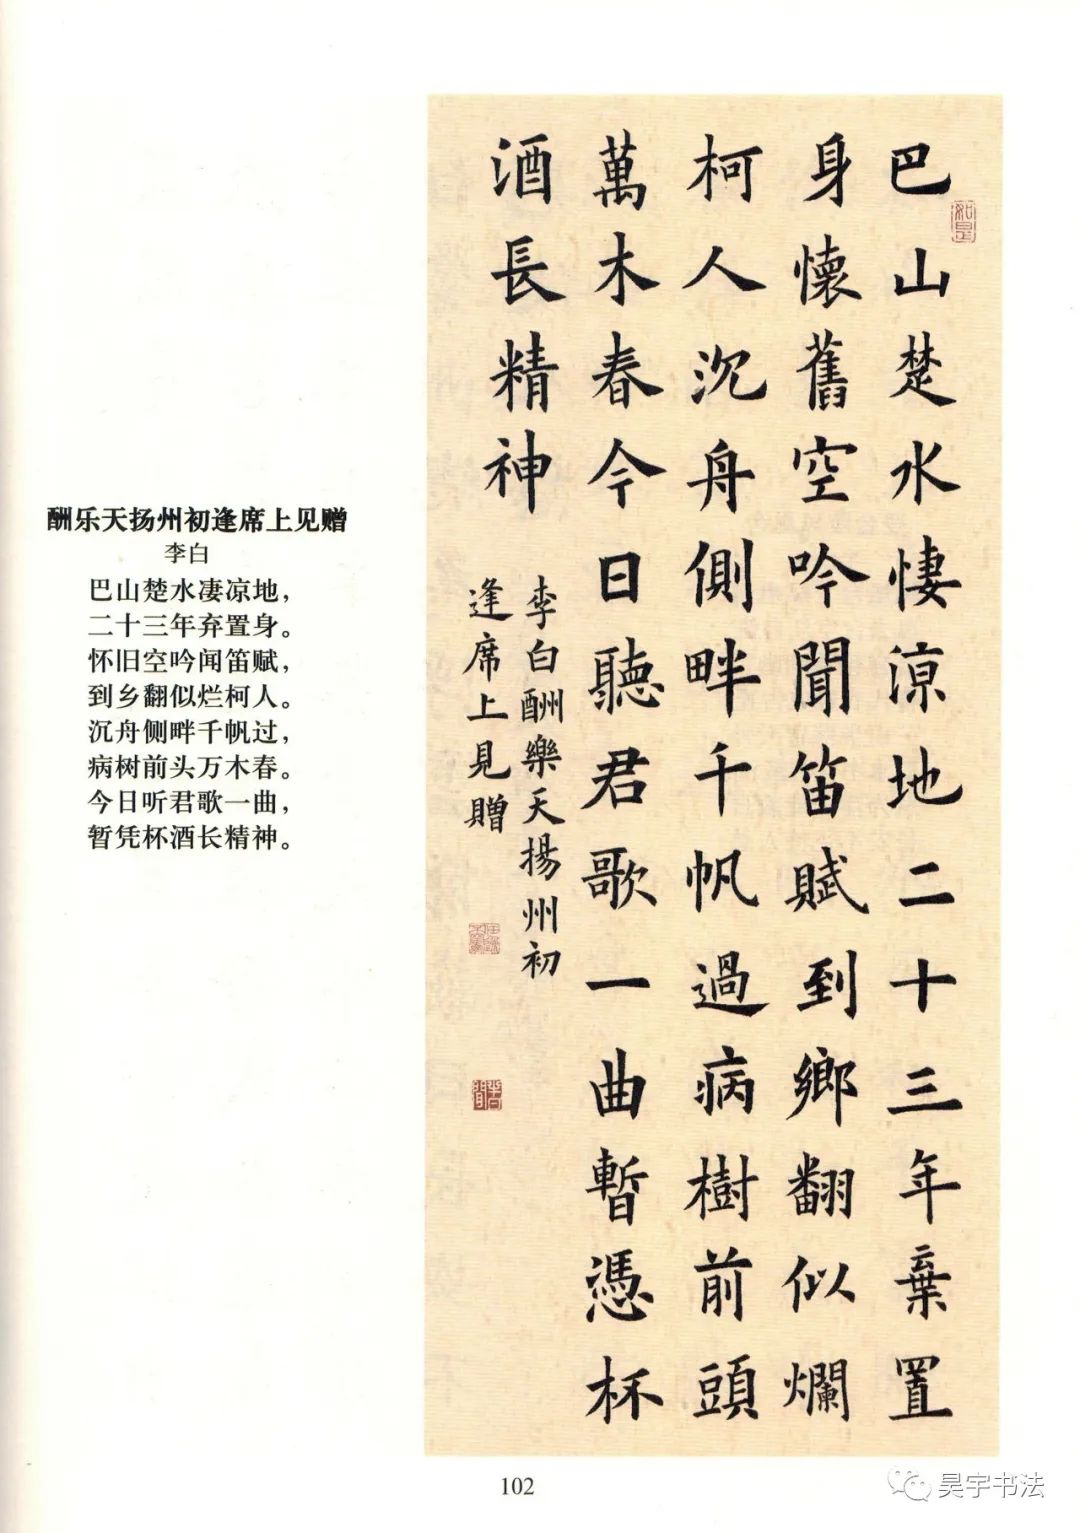 酬乐天扬州初逢席上见赠
李白
巴山楚水凄凉地，
二十三年弃置身。
怀旧空吟闻笛赋，
到乡翻似烂柯人。
沉舟侧畔千帆过，
病树前头万木春。
今日听君歌一曲，
暂凭杯酒长精神。
巴山楚水悽涼地二十三年棄置
身懷舊空吟聞笛賦到鄉翻似爛
柯人沉舟側畔千帆過病樹前頭
萬木春今日聽君歌一曲暫憑杯
酒長精神
李白酬樂天揚州初
逢席上見贈
如是
102
昊宇书法